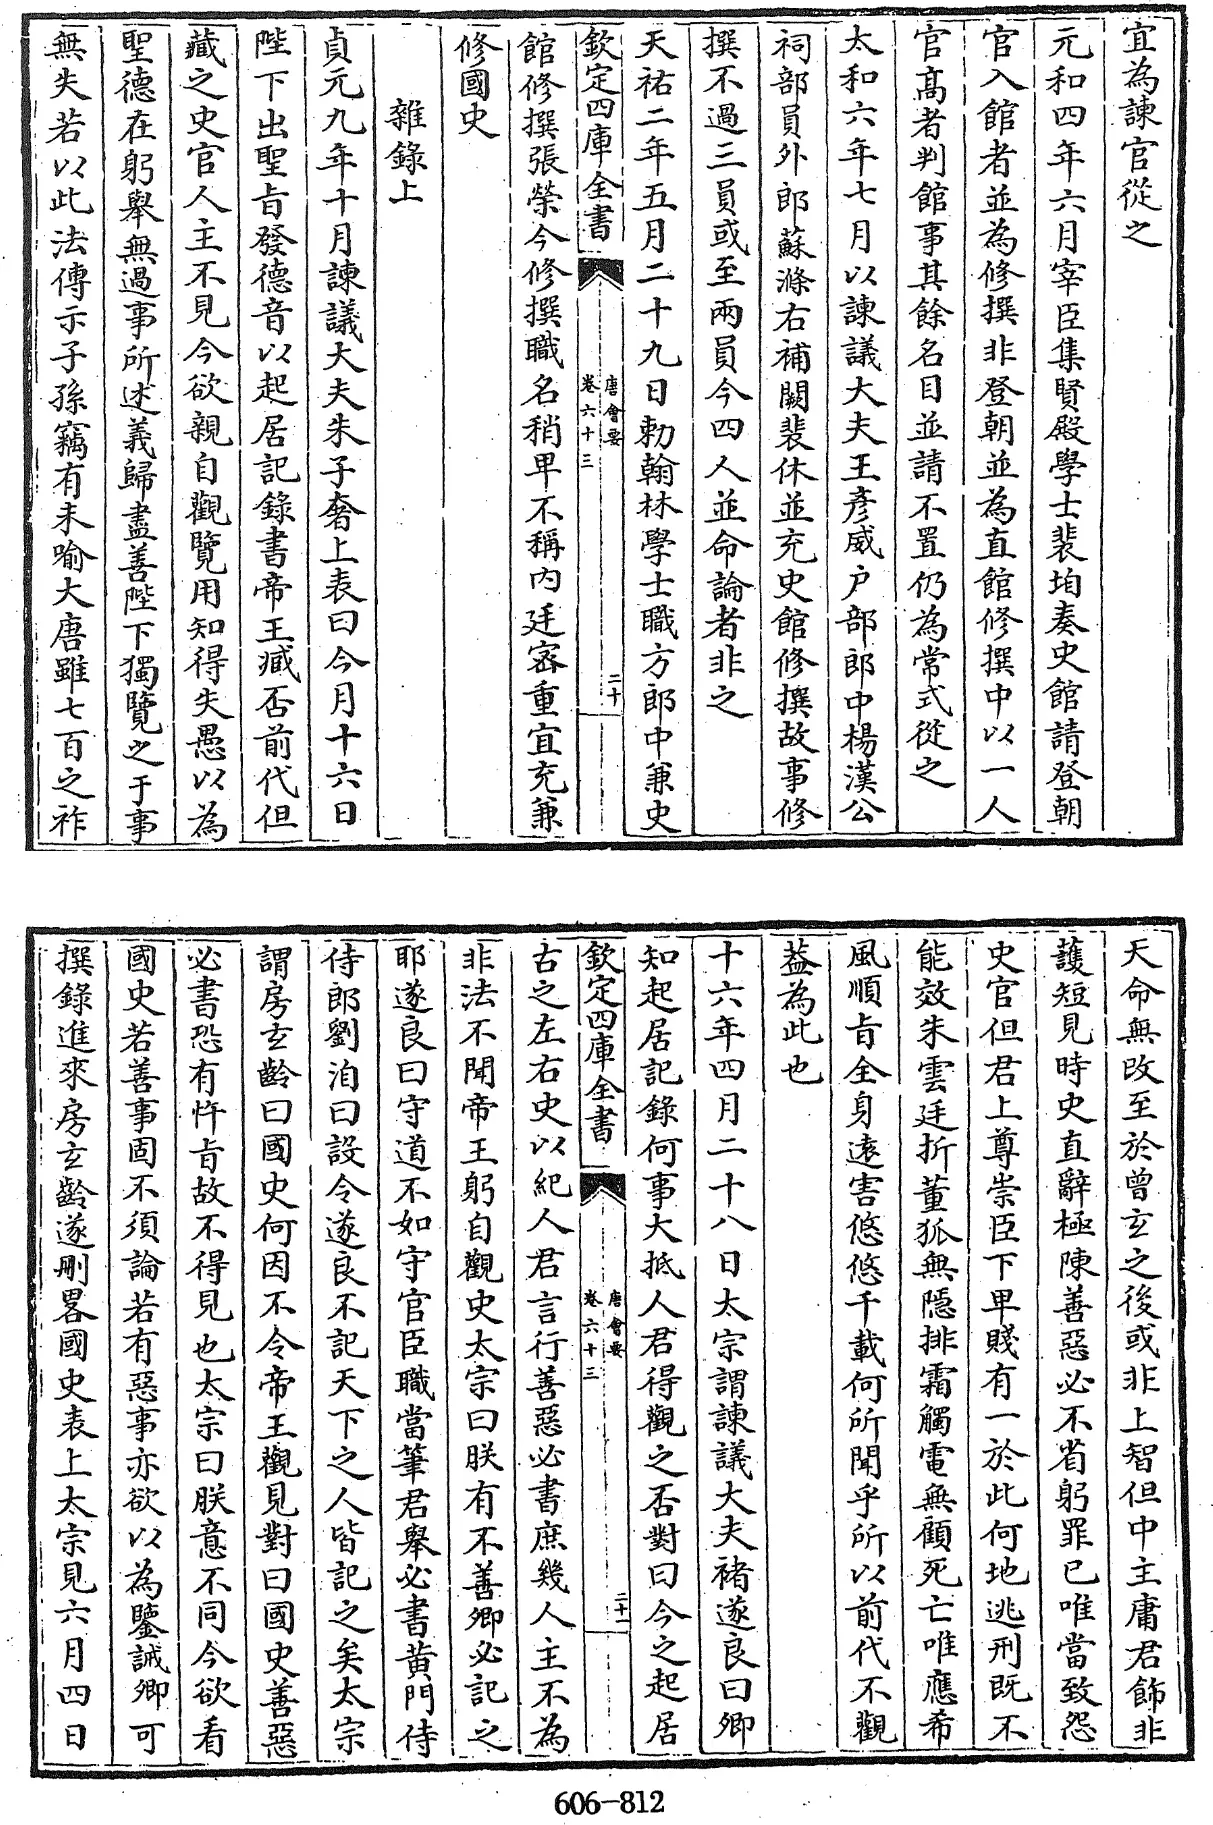 宜為諫官從之
元和四年六月宰臣集賢殿學士裴垍奏史館請登朝
官入館者並為修撰非登朝並為直館修撰中以一人
官髙者判館事其餘名目並請不置仍為常式從之
太和六年七月以諫議大夫王彦威户部郎中楊漢公
祠部員外郎蘇滌右補闕裴休並充史館修撰故事修
撰不過三員或至兩員今四人並命論者非之
天祐二年五月二十九日勅翰林學士職方郎中兼史
欽定四庫全書
唐會要
卷六十三
二十
館修撰張榮今修撰職名稍卑不稱内廷宻重宜充兼
修國史
雜錄上
貞元九年十月諫議大夫朱子奢上表曰今月十六日
陛下出聖旨發德音以起居記錄書帝王臧否前代但
藏之史官人主不見今欲親自觀覽用知得失愚以為
聖德在躬舉無過事所述義歸盡善陛下獨覽之于事
無失若以此法傳示子孫竊有未喻大唐雖七百之祚
天命無改至於曾玄之後或非上智但中主庸君飾非
護短見時史直辭極陳善惡必不省躬罪已唯當致怨
史官但君上尊崇臣下卑賤有一於此何地逃刑既不
能效朱雲廷折董狐無隠排霜觸電無顧死亡唯應希
風順旨全身遠害悠悠千載何所聞乎所以前代不觀
葢為此也
十六年四月二十八日太宗謂諫議大夫褚遂良曰卿
知起居記錄何事大抵人君得觀之否對曰今之起居
欽定四庫全書
唐會要
卷六十三
二十一
古之左右史以紀人君言行善惡必書庶幾人主不為
非法不聞帝王躬自觀史太宗曰朕有不善卿必記之
耶遂良曰守道不如守官臣職當筆君舉必書黄門侍
侍郎劉洎曰設令遂良不記天下之人皆記之矣太宗
謂房玄齡曰國史何因不令帝王觀見對曰國史善惡
必書恐有忤旨故不得見也太宗曰朕意不同今欲看
國史若善事固不須論若有惡事亦欲以為鑒誡卿可
撰錄進來房玄齡遂刪畧國史表上太宗見六月四日
606-812